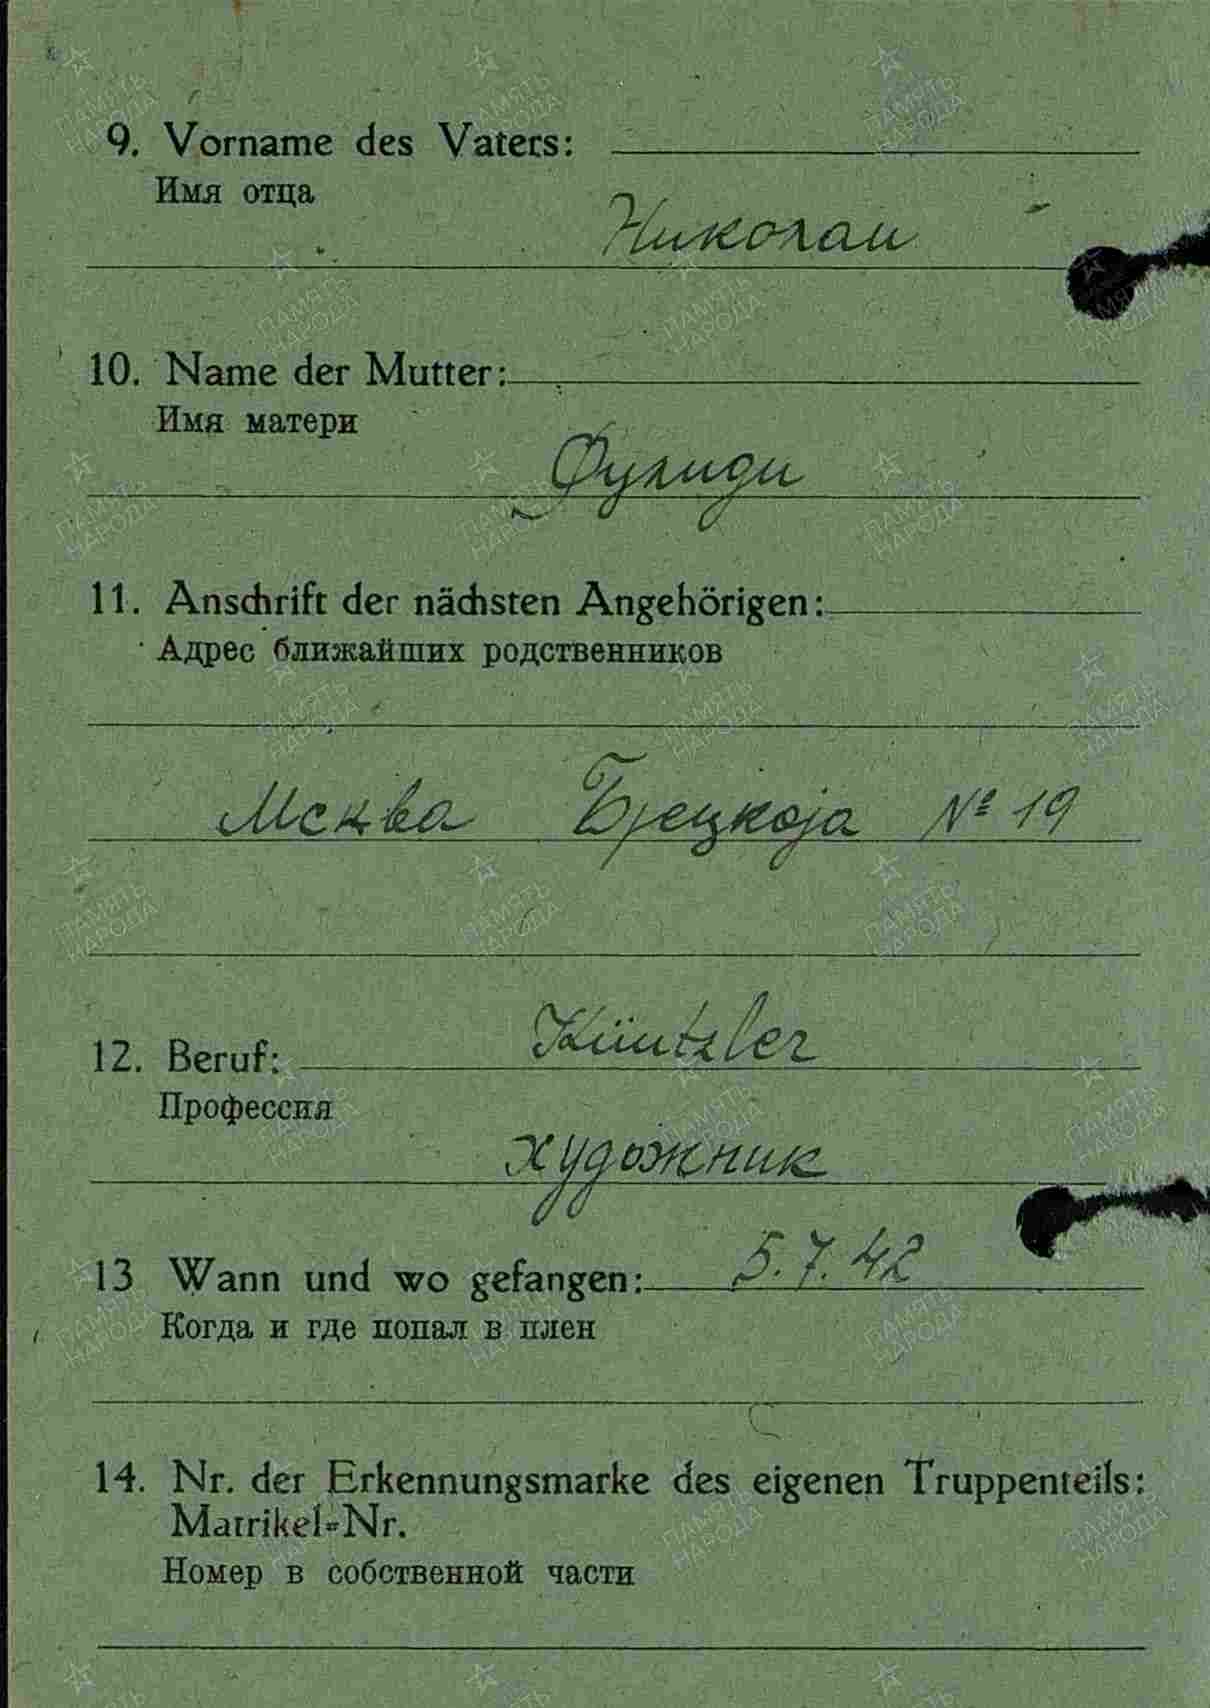 9. Vorname des Vaters:
Имя отца
Николаи
10. Name der Mutter:
Имя матери
Фулиди
11. Anschrift der nächsten Angehörigen:
Адрес ближайших родственников
Мсква Бјецкоја № 19
12. Beruf: Küutzler
Профессия
художник
13 Wann und wo gefangen: 5.7.42
Когда и где попал в плен
14. Nr. der Erkennungsmarke des eigenen Truppenteils:
Matrikel=Nr.
Номер в собственной части
ПАМЯТЬ НАРОДА